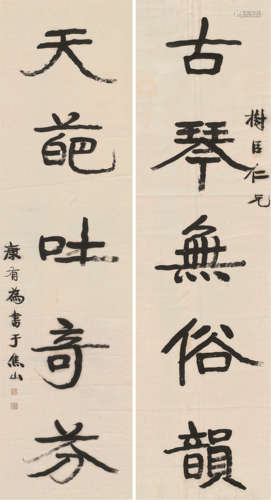 古琴無俗韻
樹臣仁兄
天葩吐奇芬
康有為書于焦山